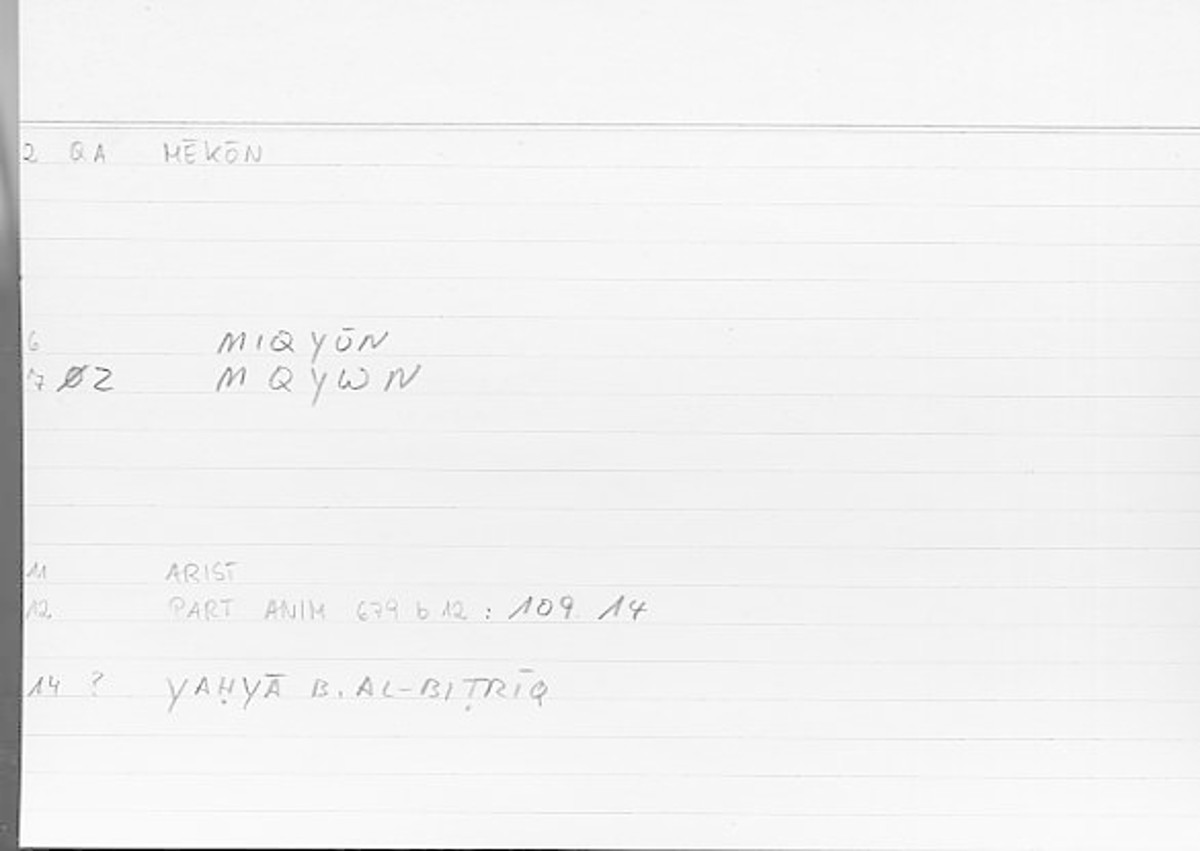 2 QA MĒKŌN
6 MIQYŌN
7 Ø2 MQYWN
11 ARIST
12 PART ANIM 679 b 12 : 109. 14
14 ? YAḤYĀ B. AL-BIṬRĪQ